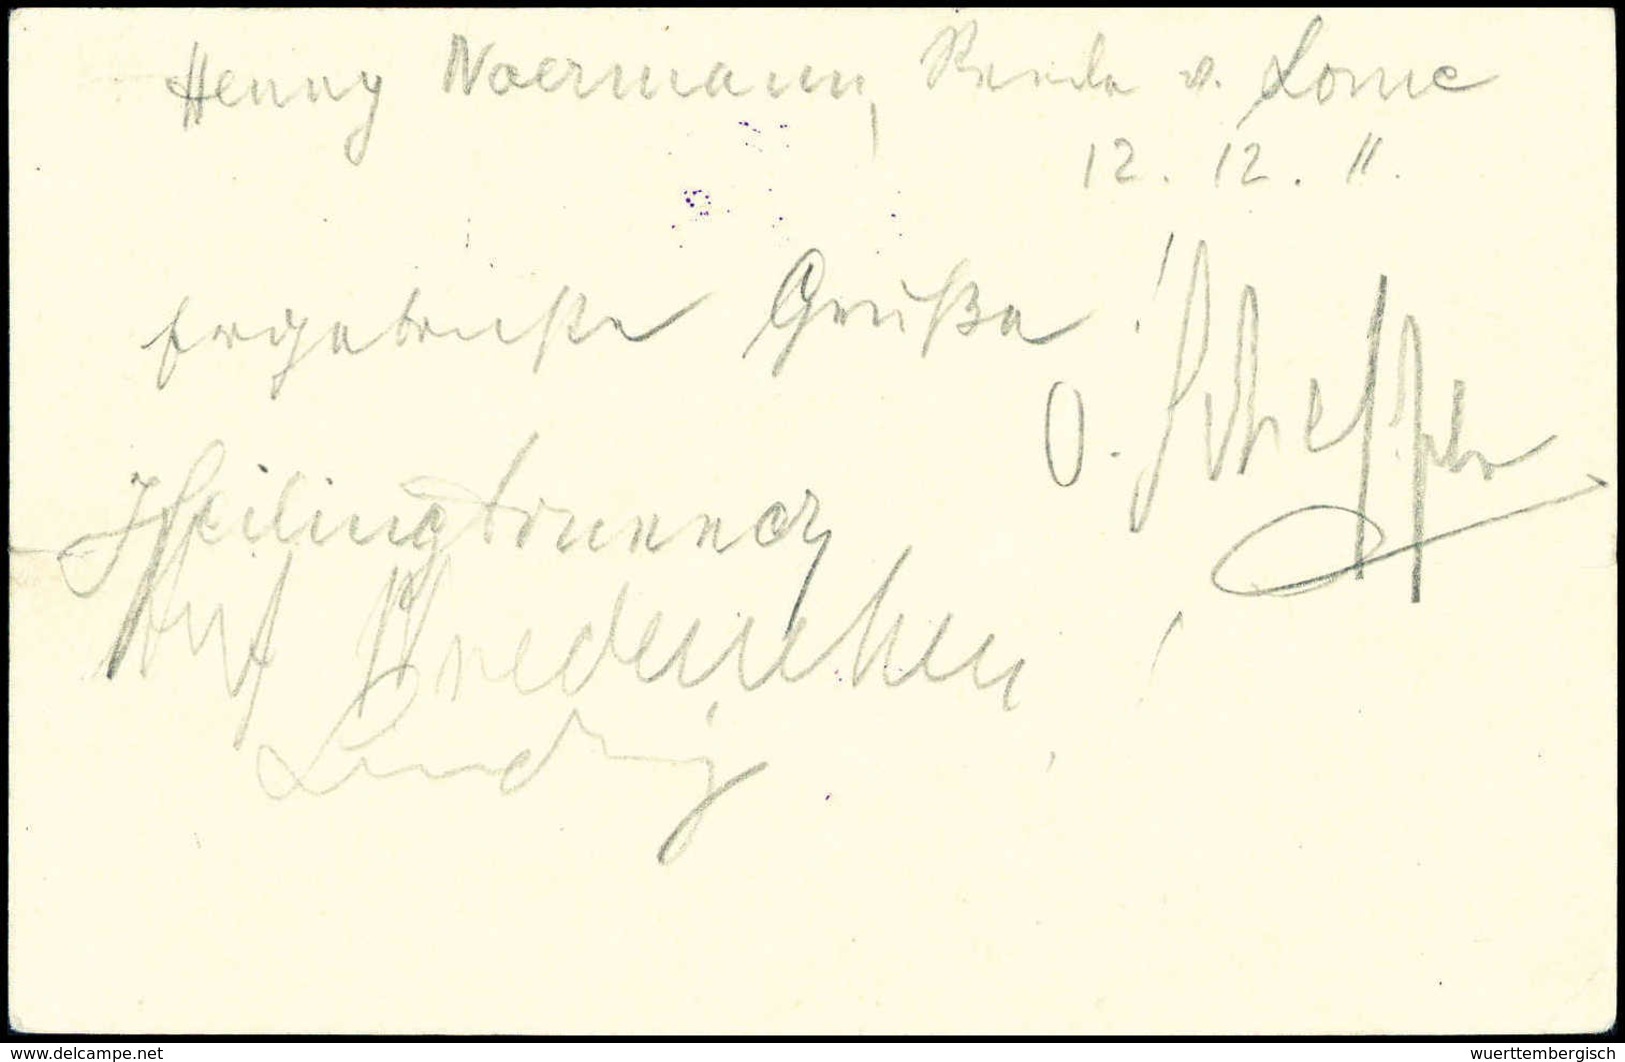 Henny Woermann, Reede v. Lome
12. 12. 11.
Ergebenste Grüße!
O. Scheffler
Heilingbrunner
Ludwig
www.delcampe.net
wuerttembergisch